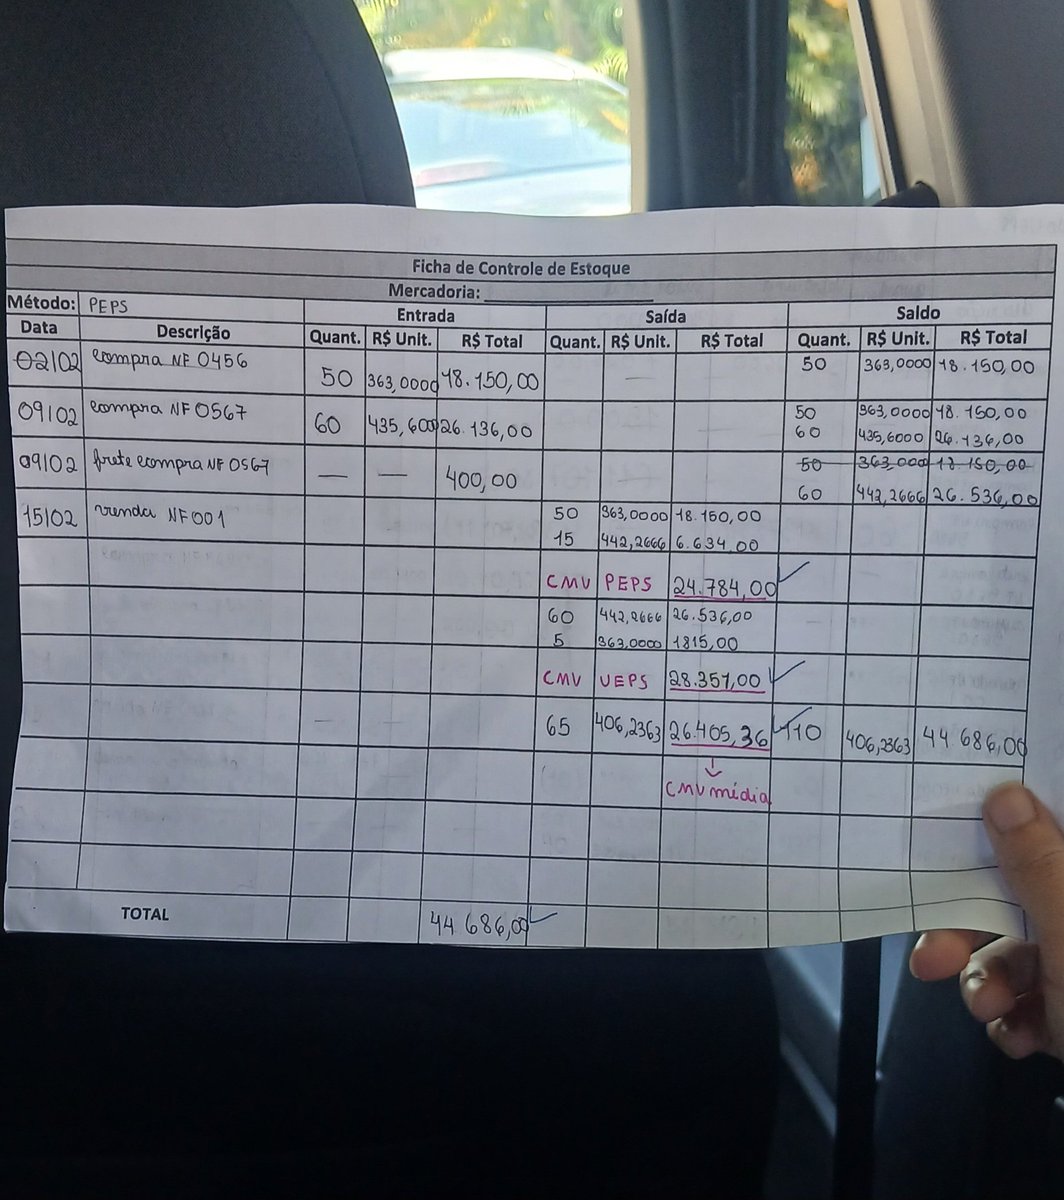 Ficha de Controle de Estoque
Mercadoria:
Método: PEPS Entrada Saída Saldo
Data Descrição Quant. R$ Unit. R$ Total Quant. R$ Unit. R$ Total Quant. R$ Unit. R$ Total
02/02 compra NF 0456 50 363,0000 18.150,00 — 50 363,0000 18.150,00
09/02 compra NF 0567 60 435,600 26.136,00 50 363,0000 18.150,00
60 435,6000 26.136,00
09/02 frete compra NF 0567 — — 400,00 50 363,000 18.150,00
60 442,2666 26.536,00
15/02 venda NF001 50 363,0000 18.150,00
15 442,2666 6.634,00
CMV PEPS 24.784,00
60 442,2666 26.536,00
5 363,0000 1815,00
CMV UEPS 28.351,00
— — 65 406,2363 26.405,36 110 406,2363 44 686,00
CMV média
TOTAL 44 686,00